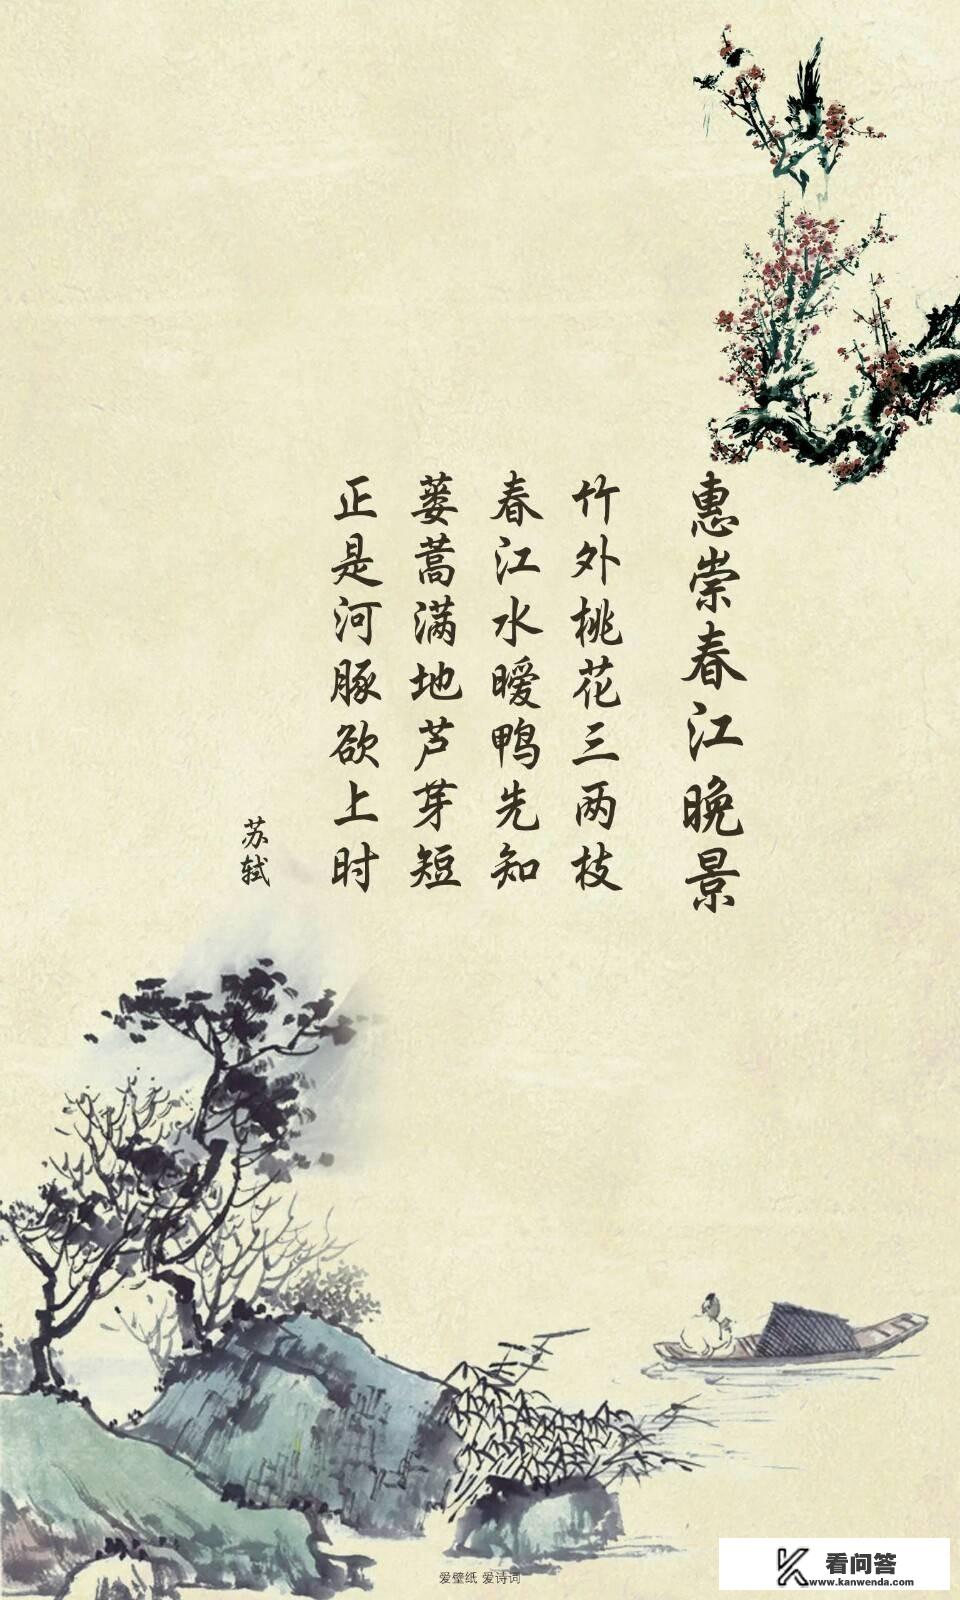 惠崇春江晚景
竹外桃花三两枝
春江水暧鸭先知
蒌蒿满地芦芽短
正是河豚欲上时
苏轼
爱壁纸 爱诗词
看问答
www.kanwenda.com